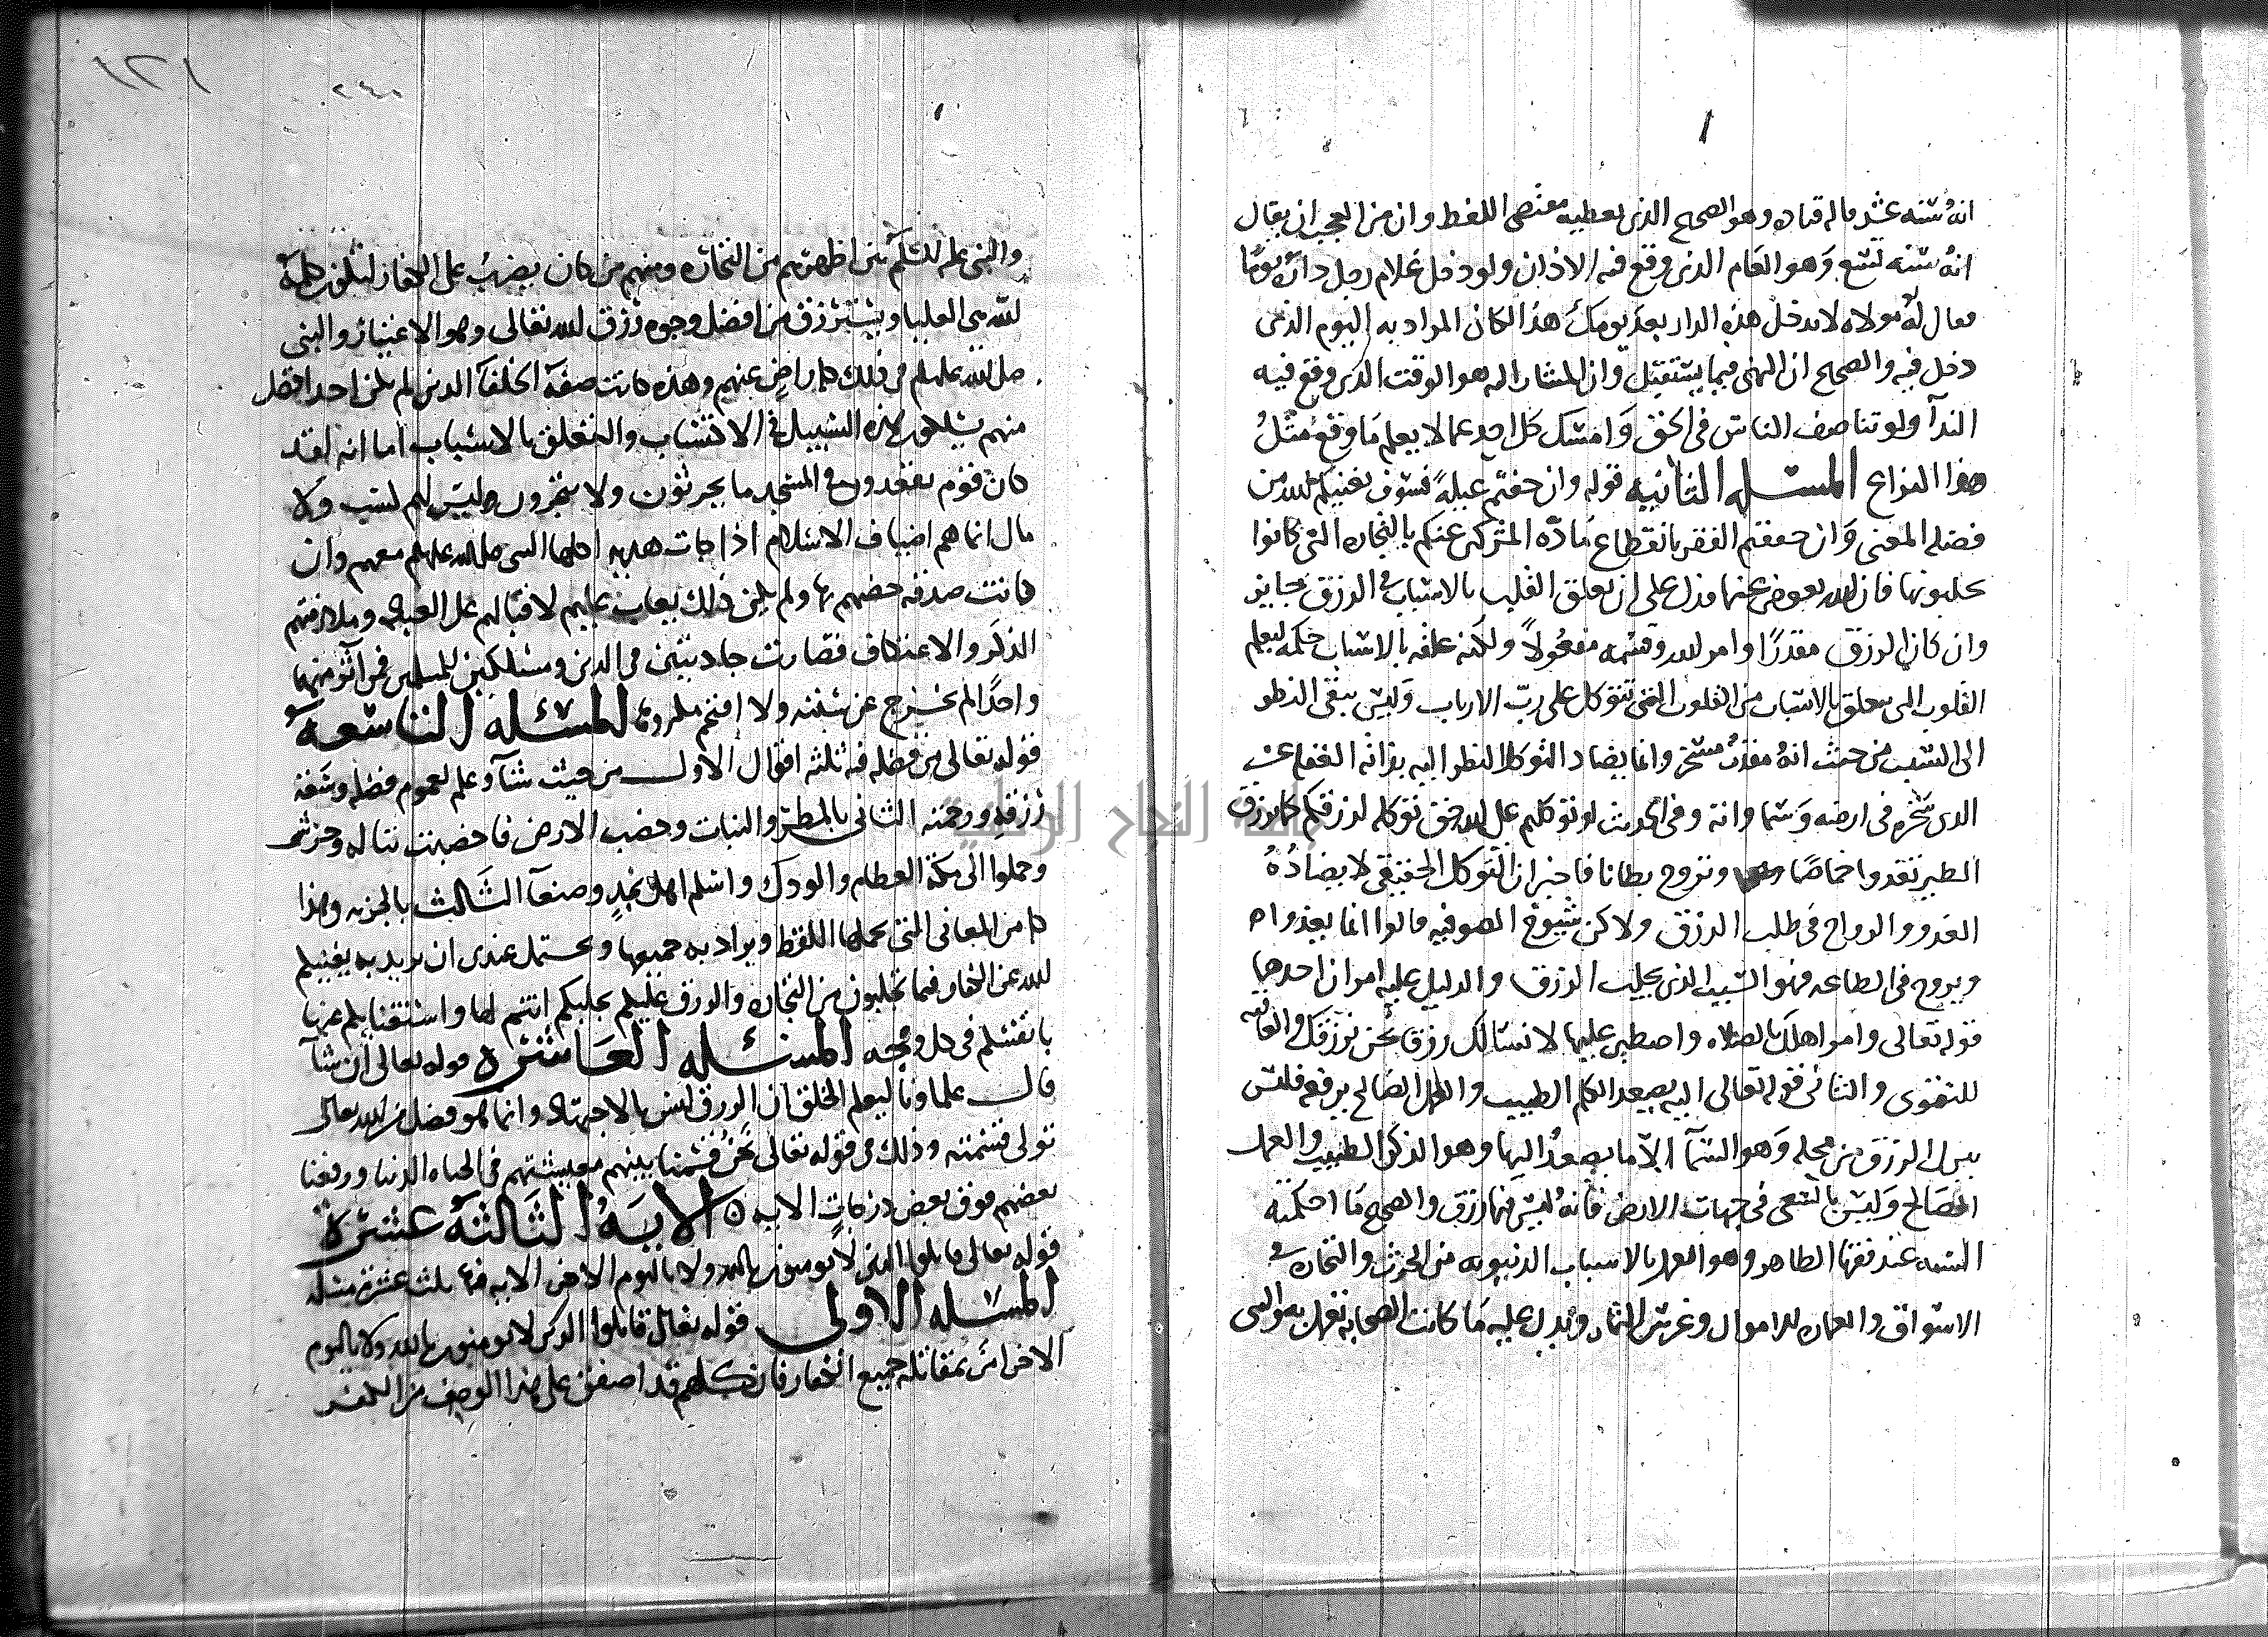 انه سنه عشر قاله قتاده وهو الصحيح الذي يعطيه مقتضى اللفظ وان من العجب ان يقال
انه سنه تسع وهو العام الذي وقع فيه الاذان ولو دخل غلام رجل داره يوما
فقال له مولاه لا تدخل هذه الدار بعد يومك هذا لكان المراد به اليوم الذي
دخل فيه والصحيح ان النهي فيما يستقبل وان المشار اليه هو الوقت الذي وقع فيه
الندآ ولو تناصف الناس في الحق وامسك كل احد عما لا يعلم ما وقع مثل
هذا النزاع المسئله الثانيه قوله وان خفتم عيلة فسوف يغنيكم الله من
فضله المعنى وان خفتم الفقر بانقطاع مادة المشركين عنكم بالتجاره التي كانوا
يجلبونها فان الله يعوض عنها فدل على ان تعلق القلب بالاسباب في الرزق جايز
وان كان الرزق مقدرا وامر الله وقسمه مفعولا ولكنه علقه بالاسباب حكمه ليعلم
القلوب التي تتعلق بالاسباب من القلوب التي تتوكل على رب الارباب وليس ينفي النظر
الى السبب من حيث انه مقدر مسخر وانما يضاد التوكل النظر اليه بذاته الغفله عن
الذي سخره في ارضه وسماواته وفي الحديث لو توكلتم على الله حق توكله لرزقكم كما يرزق
الطير تغدوا خماصا وتروح بطانا فاخبر ان التوكل الحقيقي لا يضاده
الغدو والرواح في طلب الرزق ولاكن شيوخ الصوفيه قالوا انما يغدوا
ويروح في الطاعه فهو السبب الذي يجلب الرزق والدليل عليه امران احدهما
قوله تعالى وامر اهلك بالصلاه واصطبر عليها لا نسالك رزقا نحن نرزقك والعاقبه
للتقوى والثاني قوله تعالى اليه يصعد الكلم الطيب والعمل الصالح يرفعه فليس
ينزل الرزق من محله وهو السمآ الا ما يصعد اليها وهو الذكر الطيب والعمل
الصالح وليس بالسعي في جهات الارض فانه ليس فيها رزق والصحيح ما احكمته
السنه عند فقها الظاهر وهو العمل بالاسباب الدنيويه من الحرث والتجاره في
الاسواق والعماره للاموال وغرس الثمار ويدل عليه ما كانت الصحابه تفعله والنبي
١٢١
٢٤٠
والنبي عليه السلم بين اظهرهم من التجاره ومنهم من كان يضرب على الكفار لتكون كلمة
الله هي العليا ويسترزق من افضل وجوه رزق الله تعالى وهو الاغتنام والنبي
صلى الله عليه وسلم في ذلك كله راض عنهم وهذه كانت صفة الخلفآ الذين لم يكن احد افضل
منهم يسلكون هذه السبيل في الاكتساب والتعلق بالاسباب اما انه لقد
كان قوم يقعدون في المسجد ما يحرثون ولا يتجرون وليس لهم كسب ولا
مال انما هم اضياف الاسلام اذا جات هديه اكلها النبي صلى الله عليه وسلم معهم وان
كانت صدقه خصهم بها ولم يكن ذلك يعاب عليهم لاقبالهم على العباده وملازمتهم
الذكر والاعتكاف فصارت جادتين في الدين ومسلكين للمسلمين فمن آثر منهما
واحدا لم يخرج عن سنته ولا اقتحم مكروها المسئله التاسعة
قوله تعالى من فضله فيه ثلثه اقوال الاول من حيث شآ وعلم لعموم فضله وسعة
رزقه ورحمته الثاني بالمطر والنبات وخصب الارض فاخصبت تباله وجرش
وحملوا الى مكة الطعام والودك واسلم اهل نجد وصنعآ الثالث بالجزيه وهذا
كله من المعاني التي يحملها اللفظ ويراد به جميعها ويحتمل عندي ان يريد به يغنيكم
الله عن الكفار فيما يجلبون من التجاره والرزق عليكم بجلبكم انتم لها واستغنايكم عنها
بانفسكم في كل وجه المسئله العاشره قوله تعالى ان شآ
قال علماونا ليعلم الخلق ان الرزق ليس بالاجتهاد وانما هو فضل من الله تعالى
تولى قسمته وذلك في قوله تعالى نحن قسمنا بينهم معيشتهم في الحياه الدنيا ورفعنا
بعضهم فوق بعض درجات الايه الاية الثالثة عشرة
قوله تعالى قاتلوا الذين لا يومنون بالله ولا باليوم الاخر الايه فيها ثلث عشره مسئله
المسئله الاولى قوله تعالى قاتلوا الذين لا يومنون بالله ولا باليوم
الاخر امر بمقاتلة جميع الكفار فان كلهم قد اصفق على هذا الوصف من الكفر
جامعة النجاح الوطنية